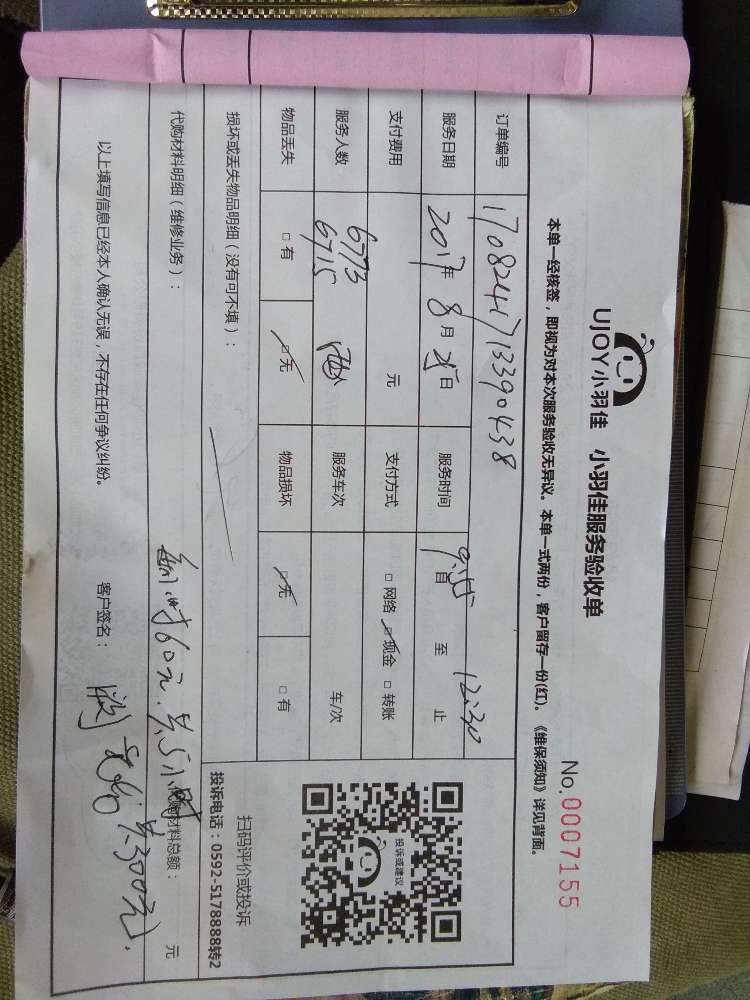 UJOY小羽佳 小羽佳服务验收单
No.0007155
本单一经核签，即视为对本次服务验收无异议。本单一式两份，客户留存一份(红)。《维保须知》详见背面。
订单编号 1708241713390438
服务日期 2017年 8月 25日 服务时间 9:55 自 至 12:30 止
支付费用 元 支付方式 □网络 ☑现金 □转账
服务人数 6773 6715 两人 服务车次 车/次
物品丢失 □有 ☑无 物品损坏 ☑无 □有
损坏或丢失物品明细（没有可不填）：
扫码评价或投诉
投诉电话：0592-5178888转2
投诉或建议
代购材料明细（维修业务）： 每小时60元.共5小时 代购材料总额： 元
共300元.
以上填写信息已经本人确认无误，不存在任何争议纠纷。 客户签名：